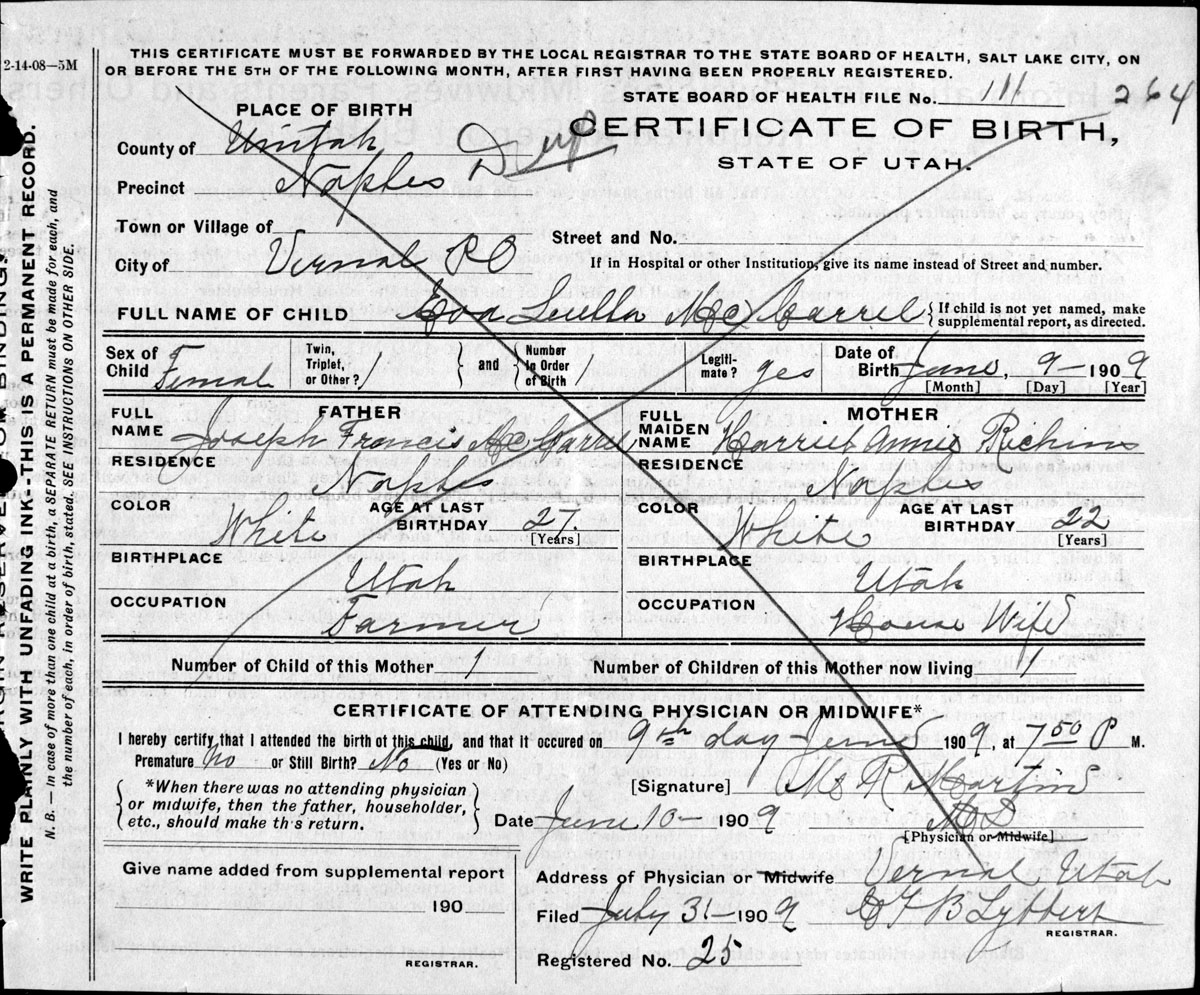 2-14-08—5M
THIS CERTIFICATE MUST BE FORWARDED BY THE LOCAL REGISTRAR TO THE STATE BOARD OF HEALTH, SALT LAKE CITY, ON
OR BEFORE THE 5TH OF THE FOLLOWING MONTH, AFTER FIRST HAVING BEEN PROPERLY REGISTERED.
PLACE OF BIRTH
STATE BOARD OF HEALTH FILE No. 111 264
County of Uintah Dup
CERTIFICATE OF BIRTH,
STATE OF UTAH.
Precinct Naples
Town or Village of Street and No.
City of Vernal P O If in Hospital or other Institution, give its name instead of Street and number.
FULL NAME OF CHILD Eva Luella Mc Carrel { If child is not yet named, make
supplemental report, as directed.
Sex of Child Female Twin, Triplet, or Other? 1 } and { Number in Order of Birth 1 Legiti-mate? yes Date of Birth June, 9 — 1909
[Month] [Day] [Year]
FATHER MOTHER
FULL NAME Joseph Francis Mc Carrel FULL MAIDEN NAME Harriet Annie Richins
RESIDENCE Naples RESIDENCE Naples
COLOR White AGE AT LAST BIRTHDAY 27 [Years] COLOR White AGE AT LAST BIRTHDAY 22 [Years]
BIRTHPLACE Utah BIRTHPLACE Utah
OCCUPATION Farmer OCCUPATION House Wife
Number of Child of this Mother 1 Number of Children of this Mother now living 1
CERTIFICATE OF ATTENDING PHYSICIAN OR MIDWIFE*
I hereby certify that I attended the birth of this child, and that it occured on 9th day June 1909, at 7 50 P M.
Premature No or Still Birth? No (Yes or No)
*When there was no attending physician
or midwife, then the father, householder,
etc., should make th s return.
[Signature] M R Martin
Date June 10 — 1909 MD
[Physician or Midwife]
Give name added from supplemental report
190
REGISTRAR.
Address of Physician or Midwife Vernal Utah
Filed July 31 — 1909 B Lybbert
REGISTRAR.
Registered No. 25
WRITE PLANLY WITH UNFADING INK—THIS IS A PERMANENT RECORD.
N. B. — In case of more than one child at a birth, a SEPARATE RETURN must be made for each, and
the number of each, in order of birth, stated. SEE INSTRUCTIONS ON OTHER SIDE.